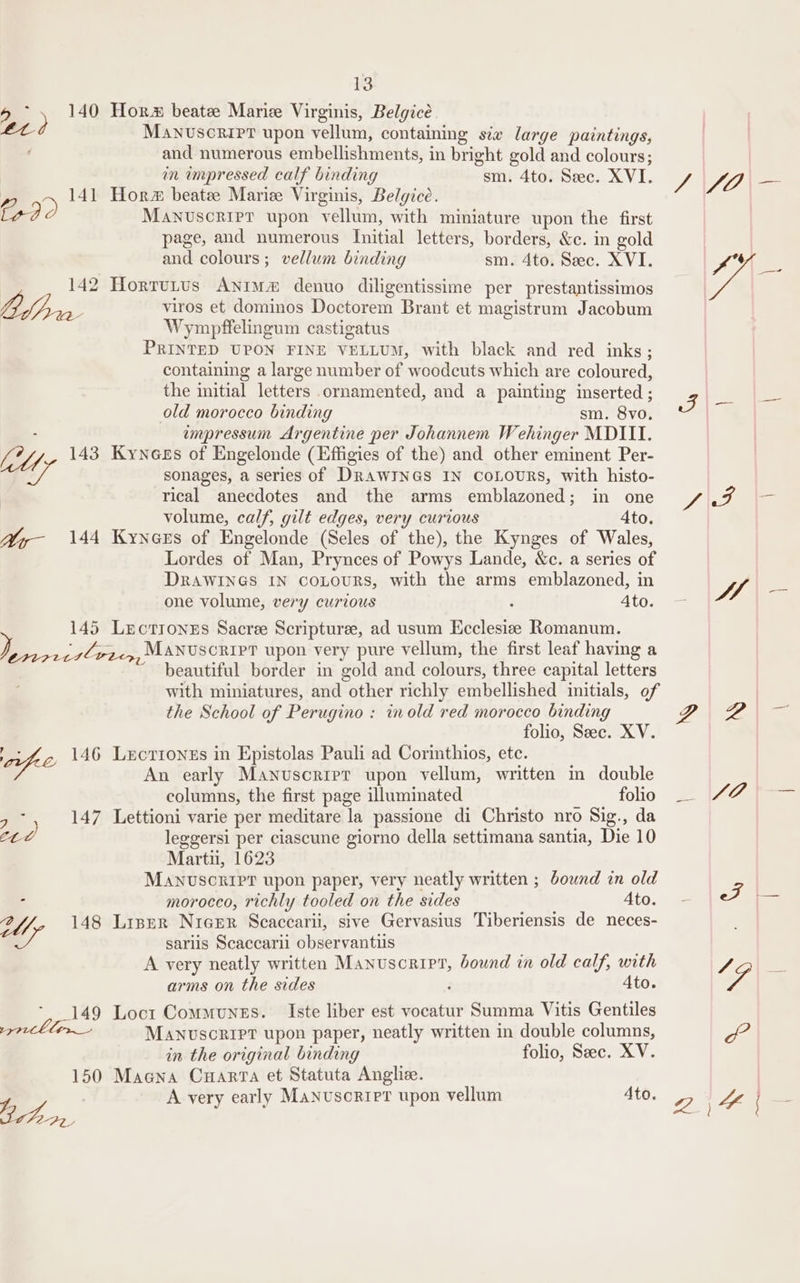 13
140 Horæ beatæ Mariæ Virginis, Belgicè
Manuscript upon vellum, containing six large paintings,
and numerous embellishments, in bright gold and colours;
in impressed calf binding sm. 4to. Sæc. XVI. 1 10 —
141 Horæ beatæ Mariæ Virginis, Belgicè.
Manuscript upon vellum, with miniature upon the first
page, and numerous Initial letters, borders, &c. in gold
and colours; vellum binding sm. 4to. Sæc. XVI.
142 Hortulus Animæ denuo diligentissime per prestantissimos
viros et dominos Doctorem Brant et magistrum Jacobum
Wympffelingum castigatus
Printed upon fine vellum, with black and red inks;
containing a large number of woodcuts which are coloured,
the initial letters ornamented, and a painting inserted;
old morocco binding sm. 8vo. 3 — —
impressum Argentine per Johannem Wehinger MDIII.
143 Kynges of Engelonde (Effigies of the) and other eminent Per-
sonages, a series of Drawings in colours, with histo-
rical anecdotes and the arms emblazoned; in one
volume, calf, gilt edges, very curious 4to. 1 3 —
144 Kynges of Engelonde (Seles of the), the Kynges of Wales,
Lordes of Man, Prynces of Powys Lande, &c. a series of
Drawings in colours, with the arms emblazoned, in
one volume, very curious 4to. — 11 —
145 Lectiones Sacræ Scripturæ, ad usum Ecclesiæ Romanum.
Manuscript upon very pure vellum, the first leaf having a
beautiful border in gold and colours, three capital letters
with miniatures, and other richly embellished initials, of
the School of Perugino: in old red morocco binding 2 2 —
folio, Sæc. XV.
146 Lectiones in Epistolas Pauli ad Corinthios, etc.
An early Manuscript upon vellum, written in double
columns, the first page illuminated folio — 10 —
147 Lettioni varie per meditare la passione di Christo nro Sig., da
leggersi per ciascune giorno della settimana santia, Die 10
Martii, 1623
Manuscript upon paper, very neatly written; bound in old
morocco, richly tooled on the sides 4to. — 3 —
148 Liber Niger Scaccarii, sive Gervasius Tiberiensis de neces-
sariis Scaccarii observantiis
A very neatly written Manuscript, bound in old calf, with
arms on the sides 4to. 19 —
149 Loci Communes. Iste liber est vocatur Summa Vitis Gentiles
Manuscript upon paper, neatly written in double columns,
in the original binding folio, Sæc. XV.
150 Magna Charta et Statuta Angliæ.
A very early Manuscript upon vellum 4to.